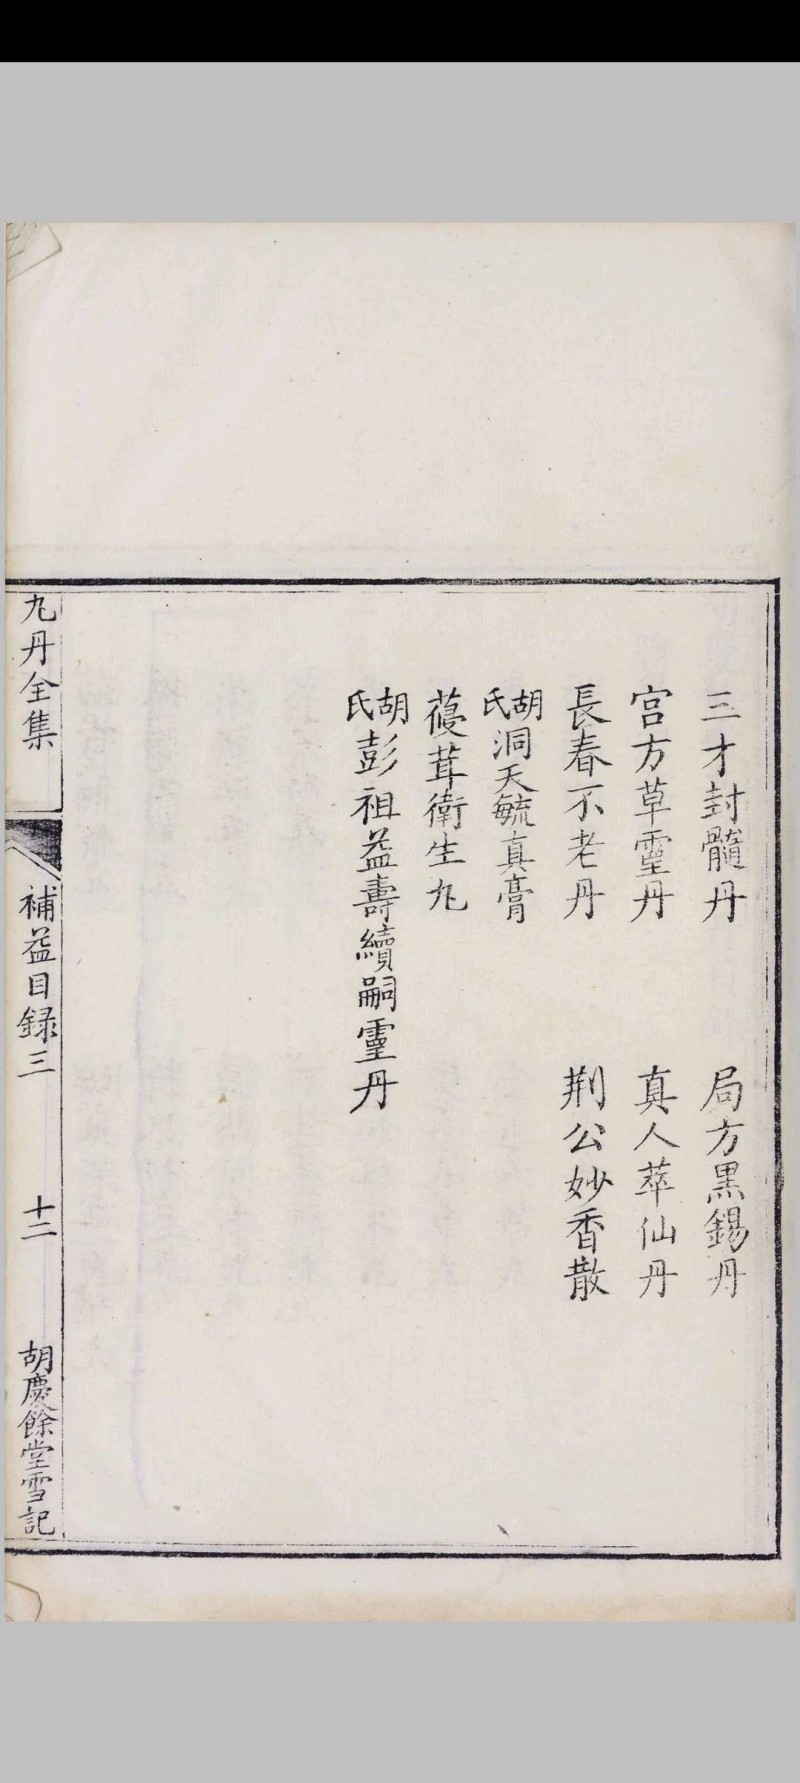 三才封髓丹
局方黑錫丹
宮方草靈丹
真人萃仙丹
長春不老丹
荆公妙香散
胡氏洞天毓真膏
葠茸衛生丸
胡氏彭祖益壽續嗣靈丹
丸丹全集
補益目録三
十二
胡慶餘堂雪記